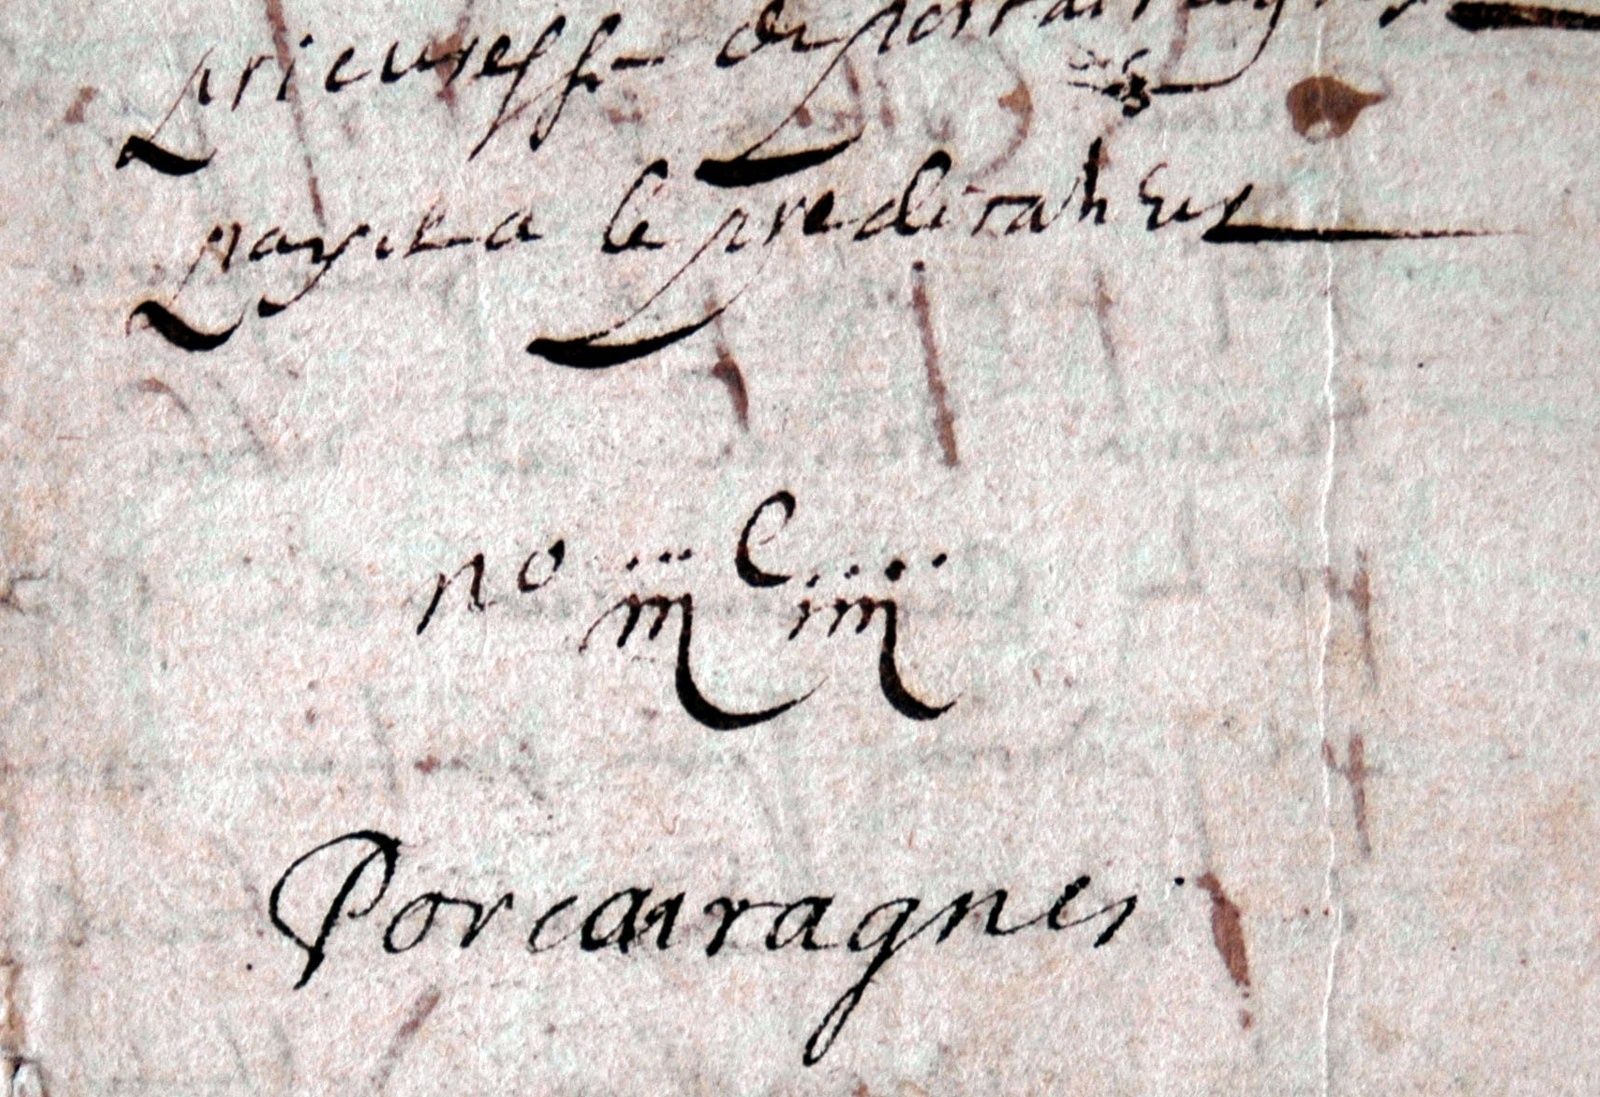 prieuress de porcairagnes
payera le predicateur
no iii C iiii
Porcairagnes